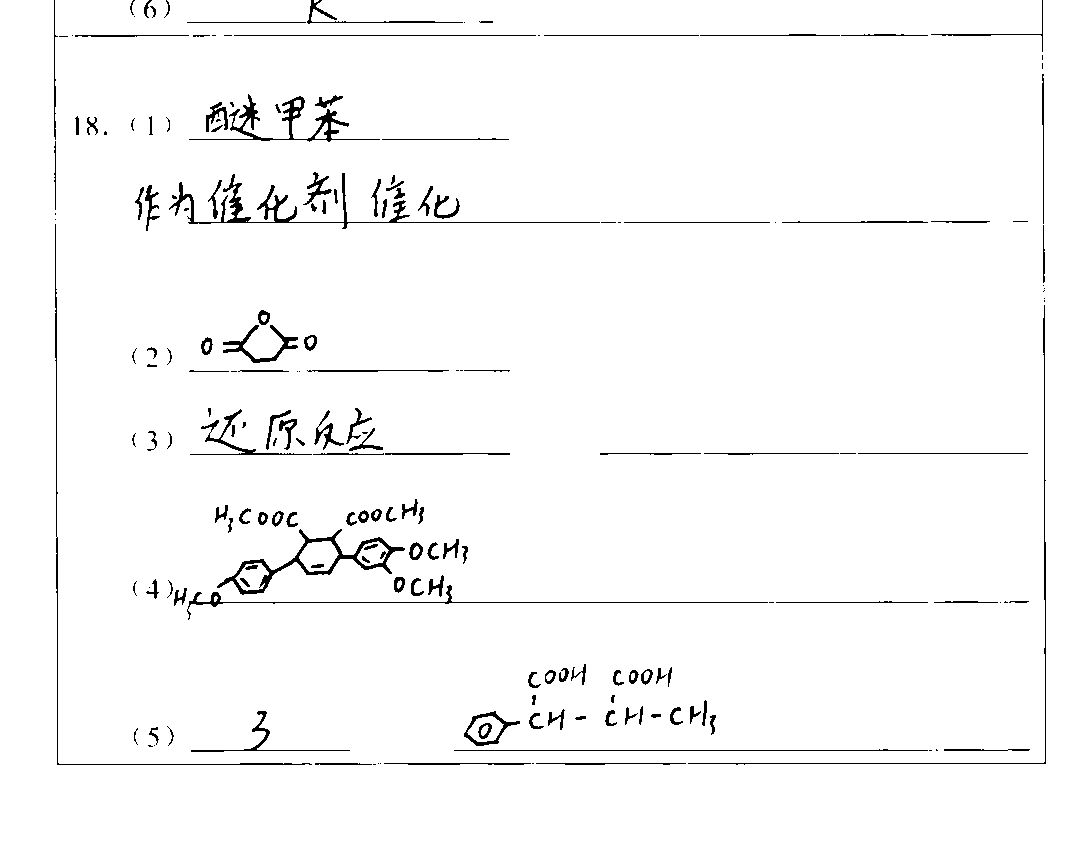 (6) K
18. (1) 醚甲苯
作为催化剂 催化
(2) O=O=O
(3) 还原反应
H₃COOC COOCH₃
OCH₃
(4) H₃CO OCH₃
COOH COOH
(5) 3 CH-CH-CH₃